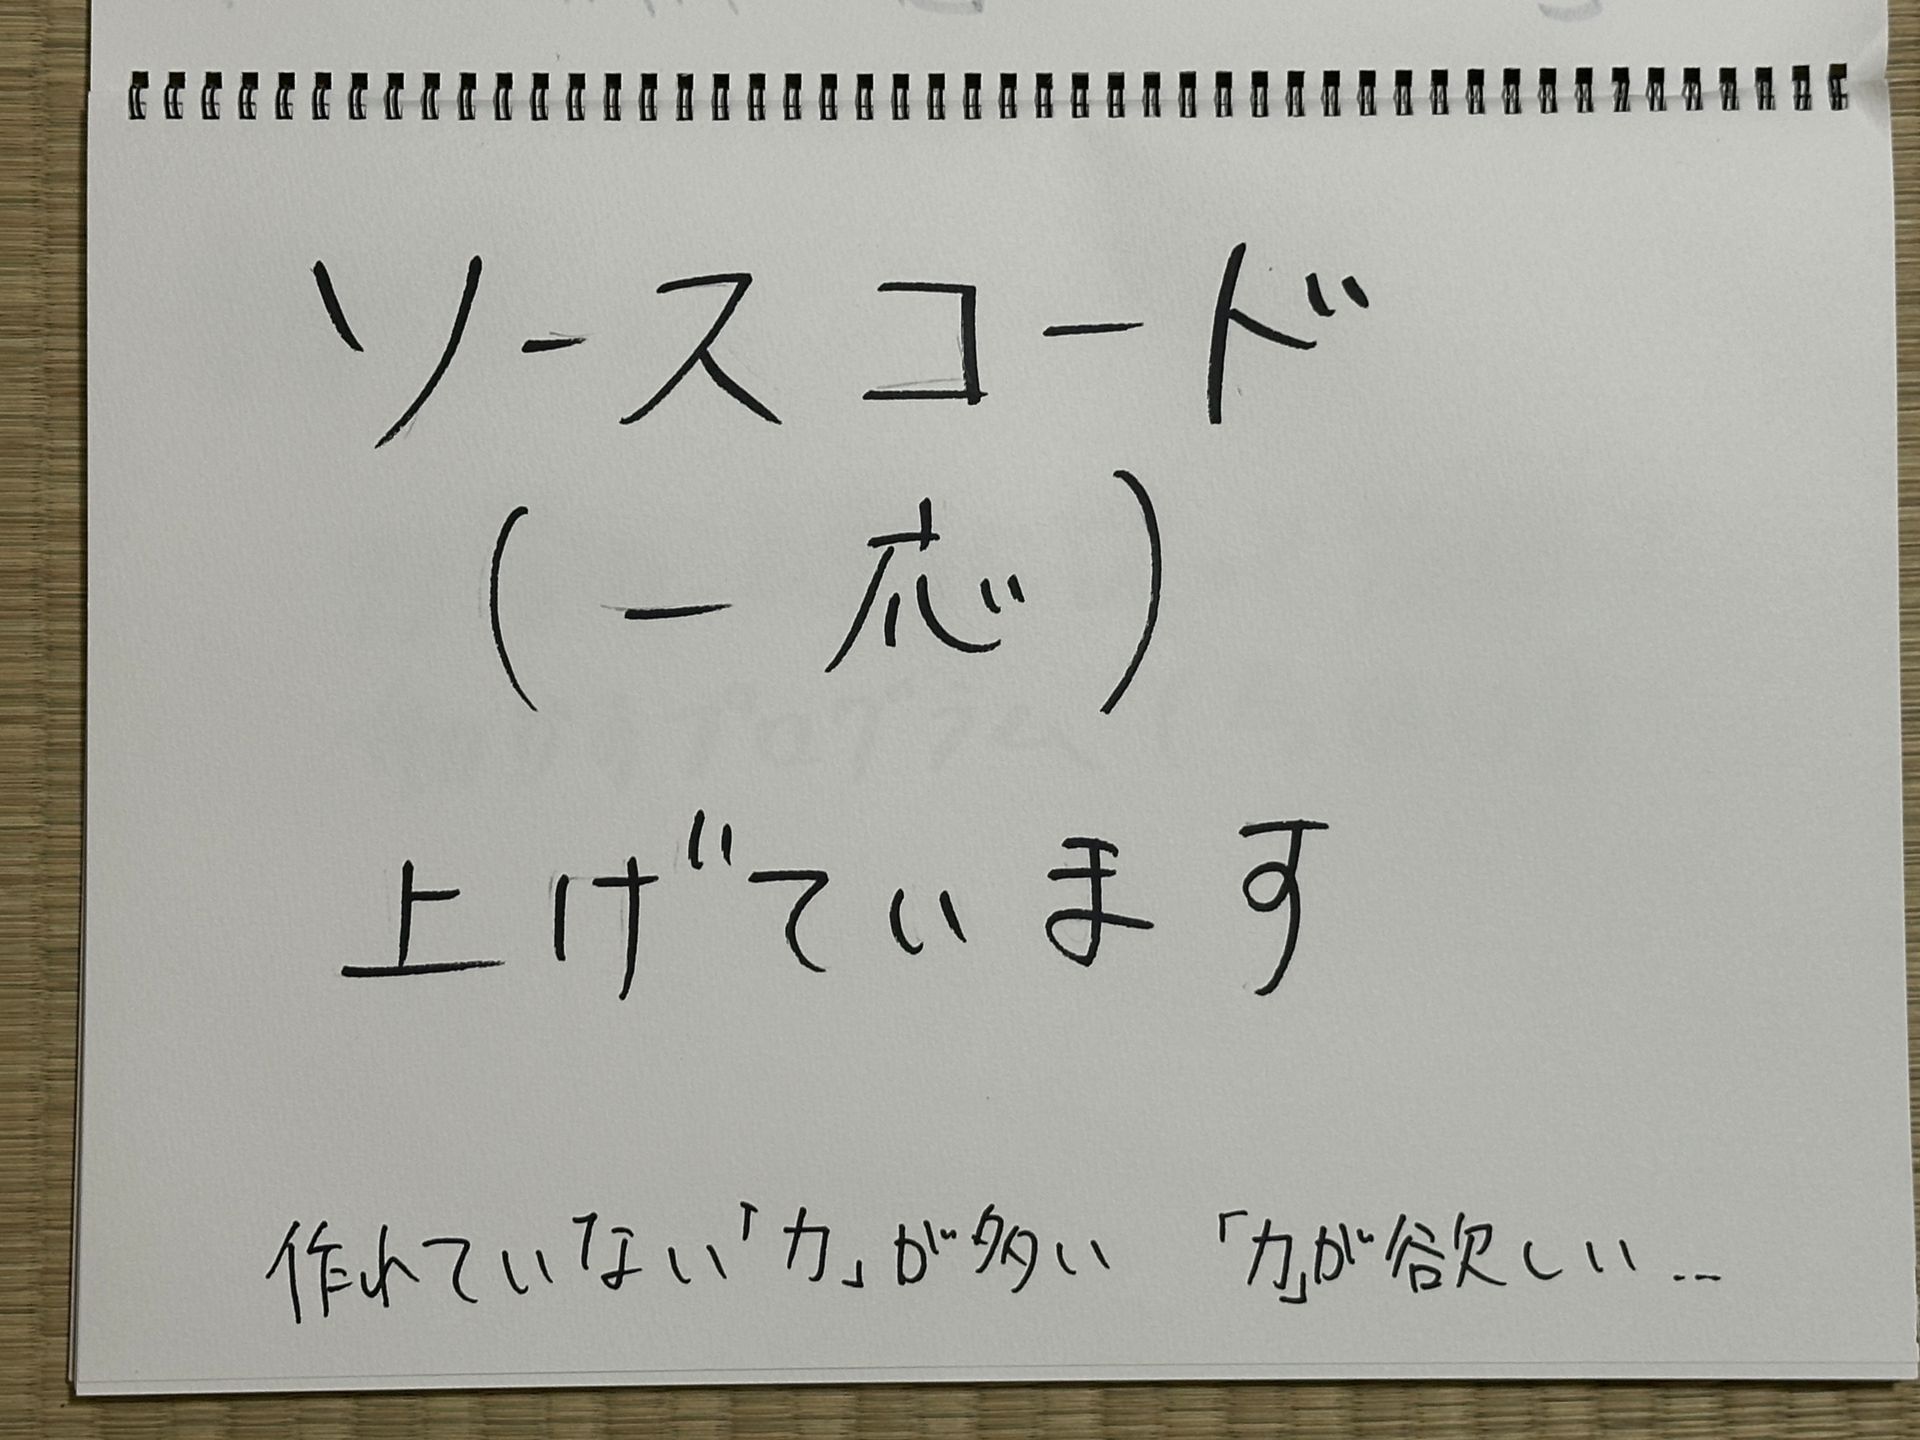 ソースコード
(一応)
上げています
作れていない「力」が多い 「力」が欲しい...